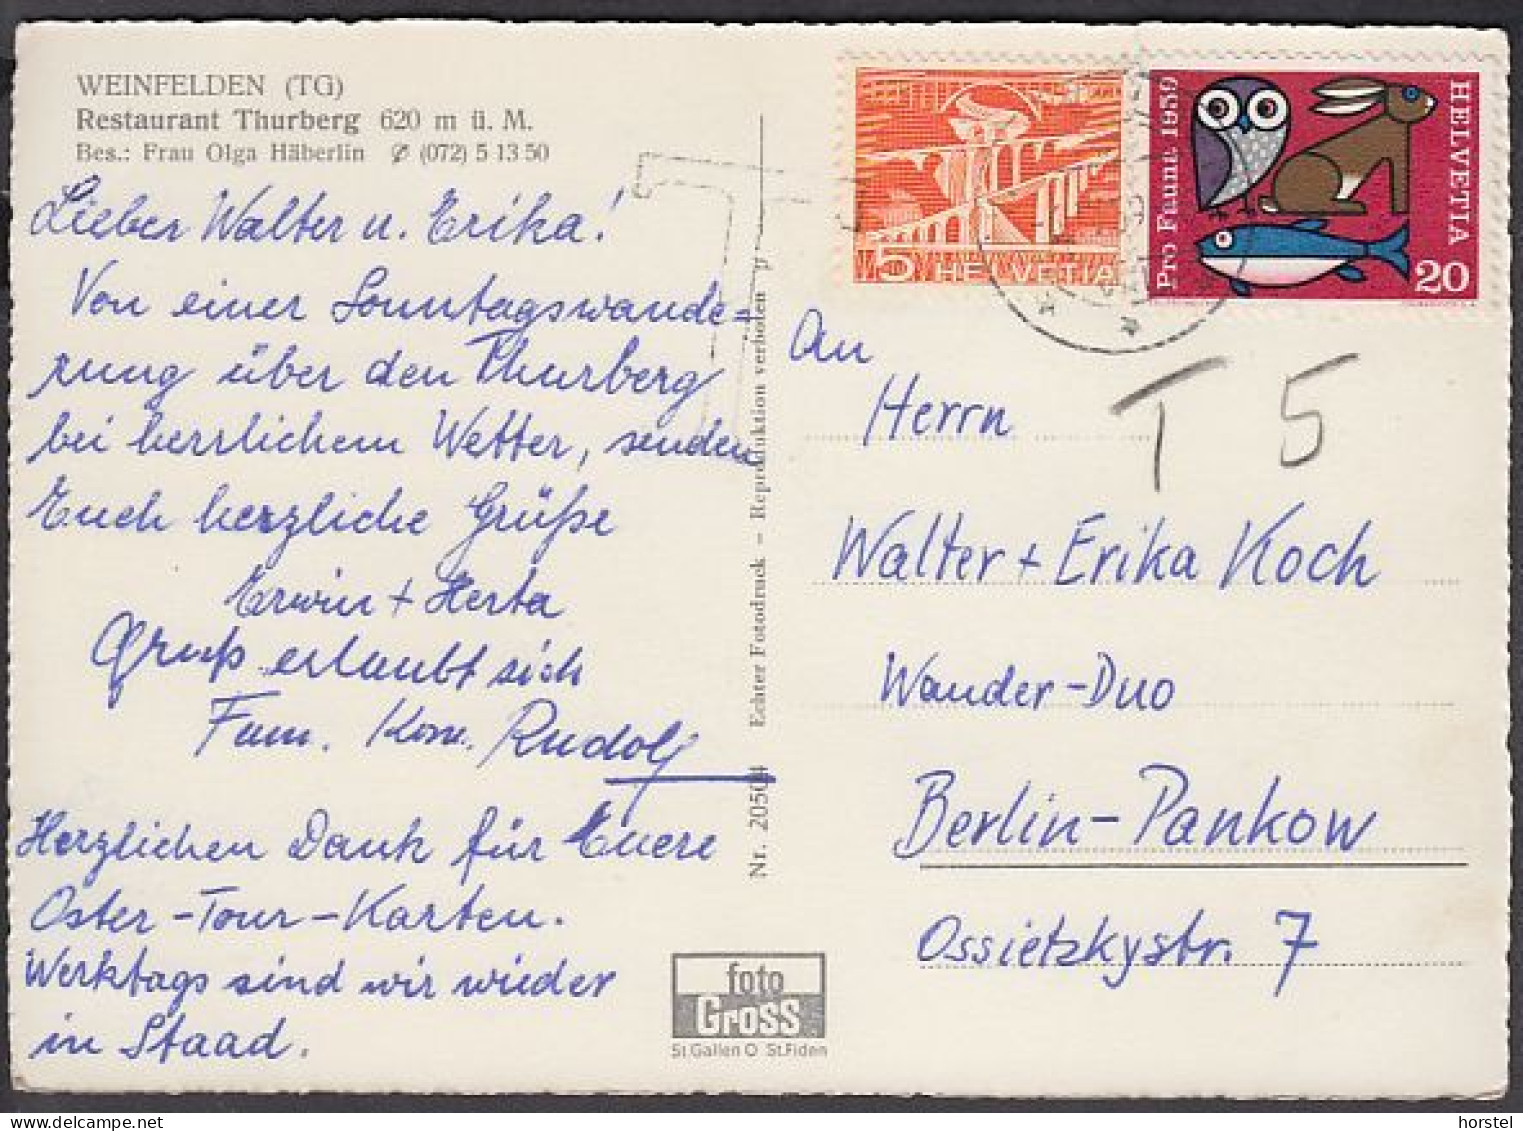 WEINFELDEN (TG)
Restaurant Thurberg 620 m ü. M.
Bes.: Frau Olga Häberlin (072) 5 13 50
Lieber Walter u. Erika!
Von einer Sonntagswande=
rung über den Thurberg
bei herrlichem Wetter, senden
Euch herzliche Grüße
Erwin + Herta
Gruß erlaubt sich
Fam. Konr. Rudolf
Herzlichen Dank für Euere
Oster-Tour-Karten.
Werktags sind wir wieder
in Staad.
Nr. 20504 Echter Fotodruck – Reproduktion verboten
foto
Gross
St.Gallen O St.Fiden
5 HELVETIA
Pro Fauna 1959
HELVETIA
20
T
T 5
An
Herrn
Walter + Erika Koch
Wander-Duo
Berlin-Pankow
Ossietzkystr. 7
horstel
delcampe.net